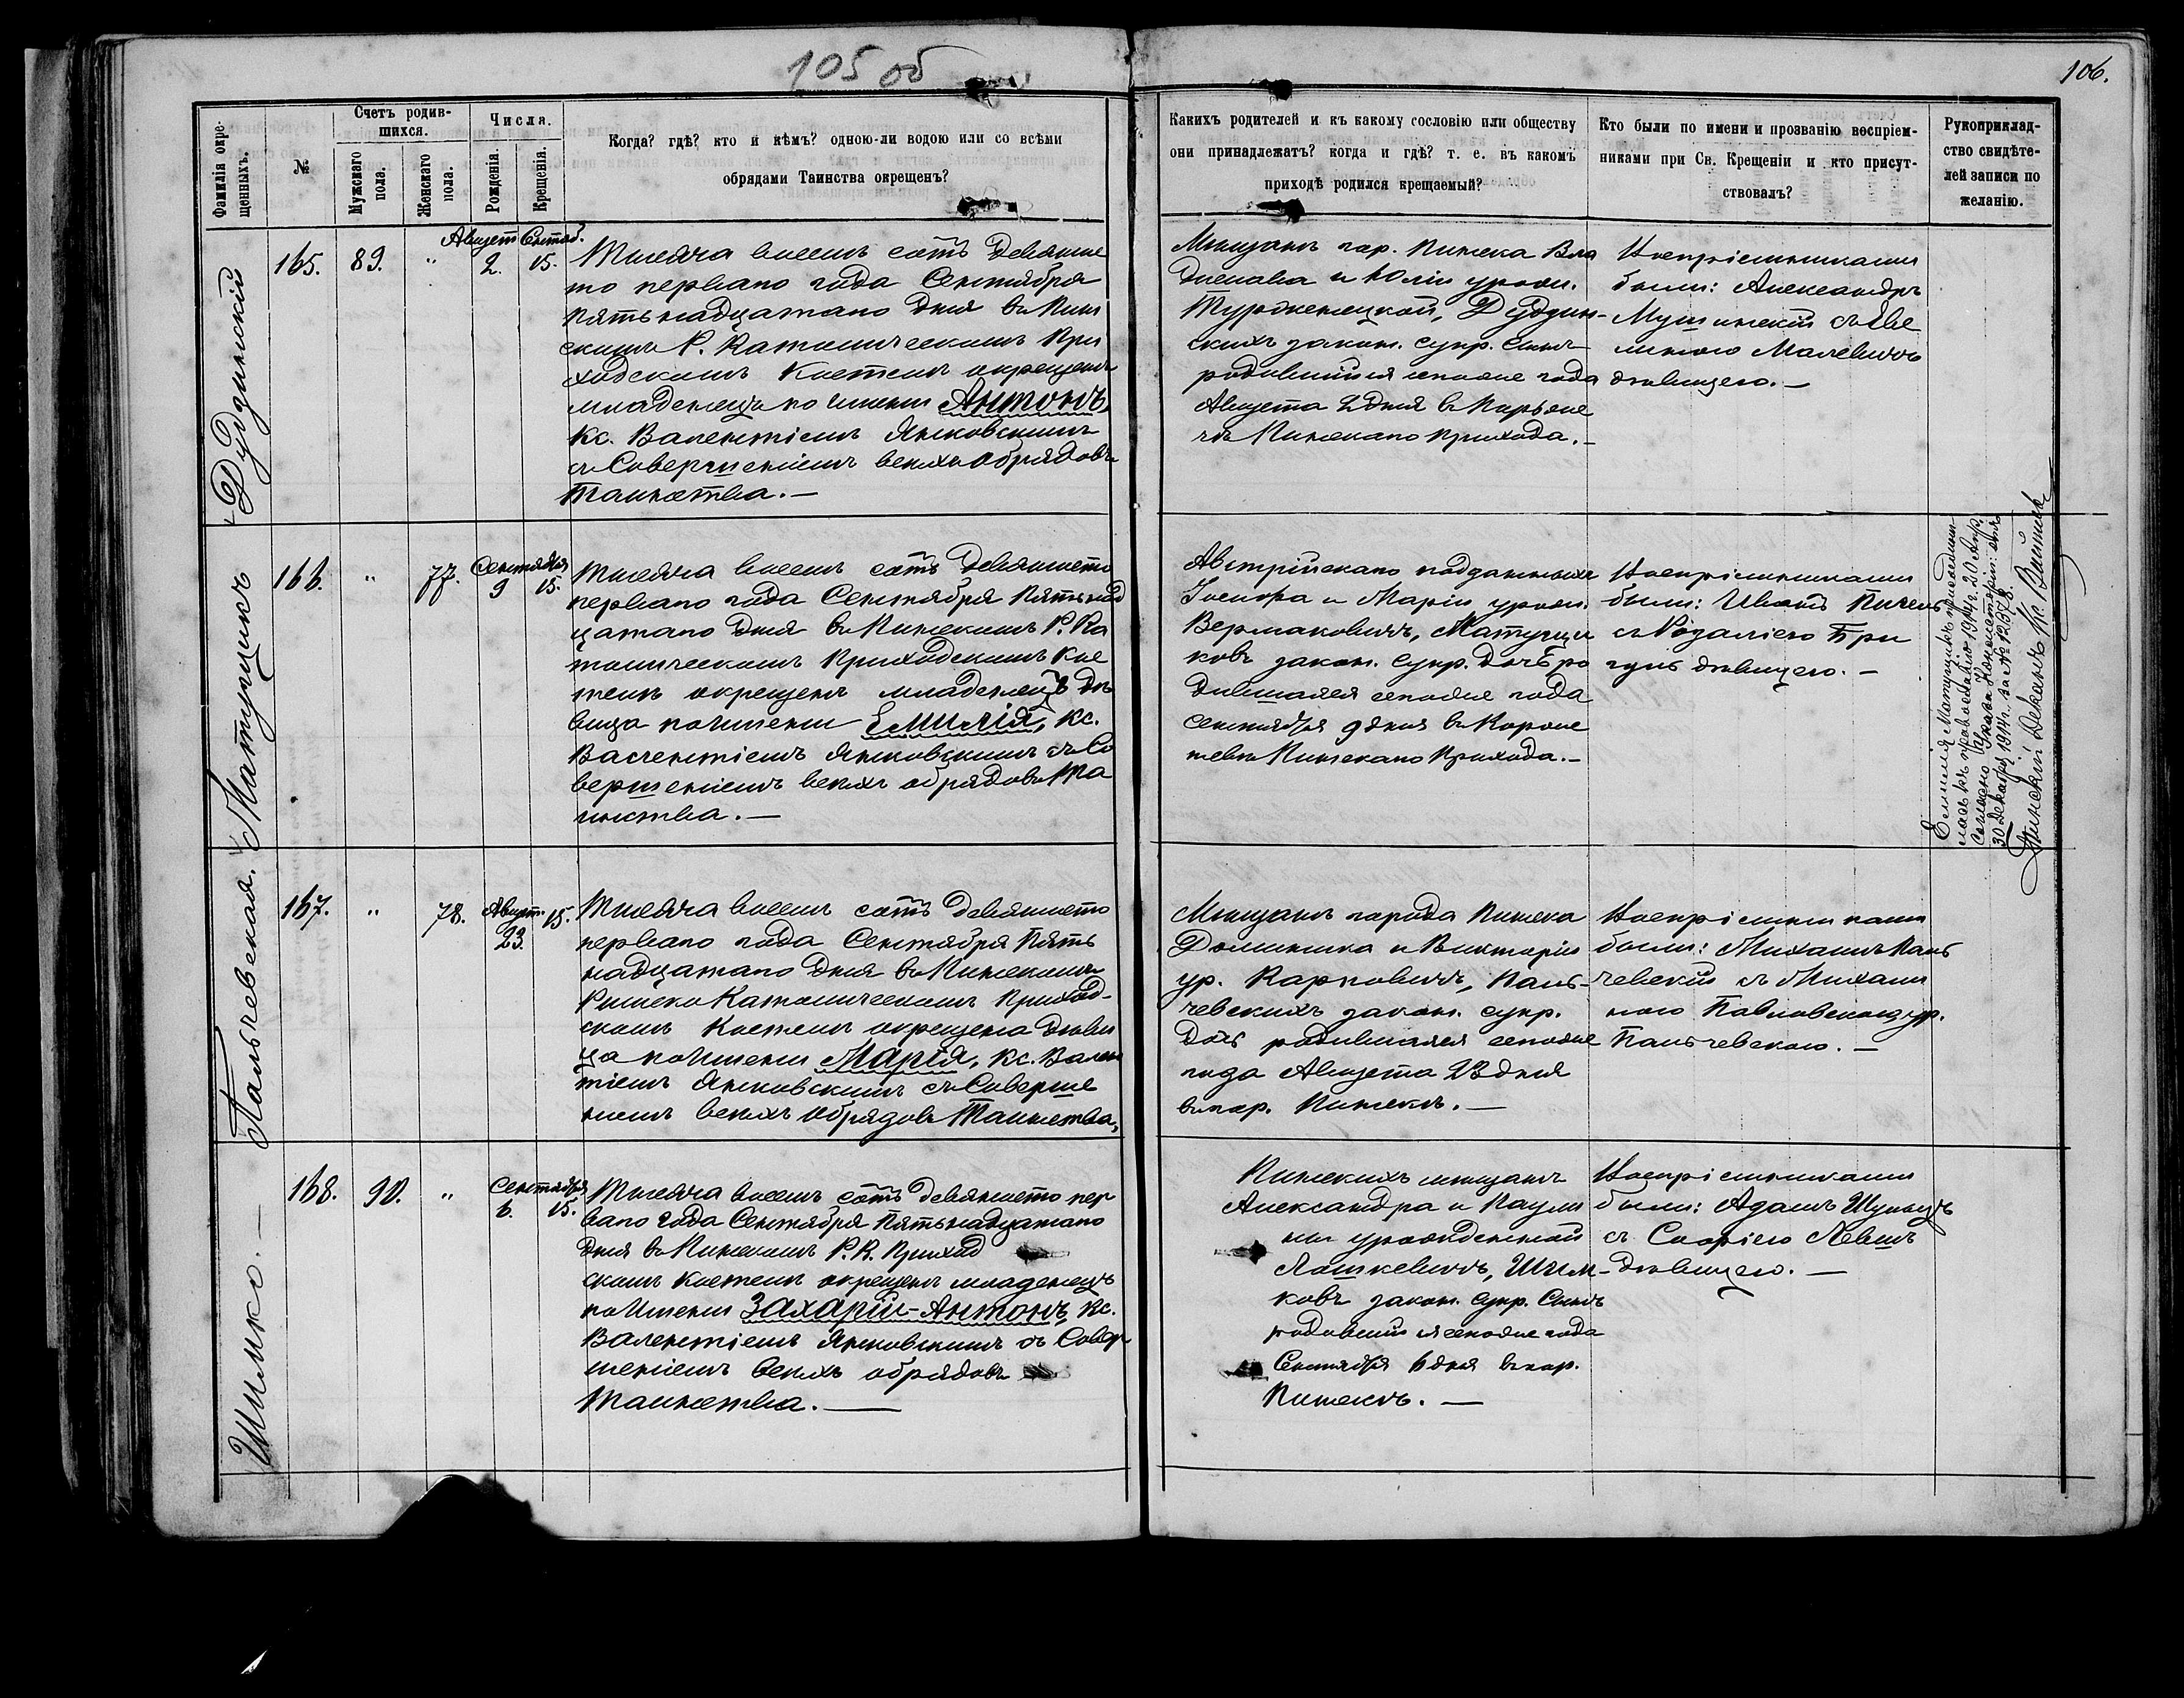 105 об
106.
Фамилія окрещенныхъ.
№
Счетъ родившихся.
Мужскаго пола.
Женскаго пола.
Числа.
Рожденія.
Крещенія.
Когда? гдѣ? кто и кѣмъ? одною-ли водою или со всѣми
обрядами Таинства окрещенъ?
Каких​ъ родителей и къ какому сословію или обществу
они принадлежатъ? когда и гдѣ? т. е. въ какомъ
приходѣ родился крещаемый?
Кто были по имени и прозванію воспріем-
никами при Св. Крещеніи и кто присут-
ствовалъ?
Рукоприклад-
ство свидѣте-
лей записи по
желанію.
Дудзинскій
165.
89.
"
Август. 2.
Сентяб. 15.
Тысяча восемь сотъ девяносто
перваго года Сентября
пятьнадцатаго дня въ Пин
скомъ Р. Католическомъ При
ходскомъ Костелѣ окрещенъ
младенецъ по имени Антонъ,
Кс. Валентіемъ Янковскимъ
съ Совершеніемъ всѣхъ обрядовъ
Таинства. —
Мѣщанъ гор. Пинска Вла
дислава и Юліи урожд.
Дудзин-
скихъ закон. супр. сынъ
родившійся сегоже года
Августа 2 дня въ
Пинскаго прихода. —
Воспріемниками
были: Александръ
съ Эве
линою Малевичъ
дѣвицею. —
Матущикъ
166.
"
77.
Сентября
9
15.
Тысяча восемь сотъ девяносто
перваго года Сентября Пятьнад
цатаго дня въ Пинскомъ Р. Ка
толическомъ Приходскомъ Кос
телѣ окрещенъ младенецъ дѣ
вица по имени Емилія, Кс.
Валентіемъ Янковскимъ съ Со
вершеніемъ всѣхъ обрядовъ Та
инства. —
Австрійскаго подданныхъ
Іосифа и Маріи урожд.
Вермаковичъ, Матущи
ковъ закон. супр. дочь ро
дившаяся сегоже года
сентября 9 дня въ
Пинскаго Прихода. —
Воспріемниками
были: Иванъ
съ Розаліею
дѣвицею. —
Емилія Матущикъ присоедини-
лась къ православію 1914 г. 20 Апр.
Согласно Указа Консисторіи: отъ
30 Декабря 1914 г. за № 12578.
Пинскій Деканъ Кс.
Пальчевская.
167.
"
78.
Август.
23.
15.
Тысяча восемь сотъ девяносто
перваго года Сентября Пять
надцатаго дня въ Пинскомъ
Римско Католическомъ приход-
скомъ Костелѣ окрещена дѣви
ца по имени Марія, Кс. Вален
тіемъ Янковскимъ съ Соверше
ніемъ всѣхъ обрядовъ Таинства.
Мѣщанъ города Пинска
Доминика и Викторіи
ур. Карповичъ, Паль-
чевскихъ закон. супр.
дочь родившаяся сегоже
года Августа 23 дня
въ гор. Пинскѣ. —
Воспріемниками
были: Михаилъ Паль
чевскій съ Михали
ною Павловскою ур.
Пальчевскою. —
Шимко. —
168.
90.
"
Сентября
6.
15.
Тысяча восемь сотъ девяносто пер
ваго года Сентября Пятьнадцатаго
дня въ Пинскомъ Р. К. Приход
скомъ Костелѣ окрещенъ младенецъ
по имени Захарій-Антонъ, Кс.
Валентіемъ Янковскимъ съ Совер
шеніемъ всѣхъ обрядовъ
Таинства. —
Пинскихъ мѣщанъ
Александра и Паули
ны урожденной
Лошкевичъ, Шим-
ковъ закон. супр. сынъ
родившійся сегоже года
Сентября 6 дня въ гор.
Пинскѣ. —
Воспріемниками
были: Адамъ
съ Софіею Левшъ
дѣвицею. —